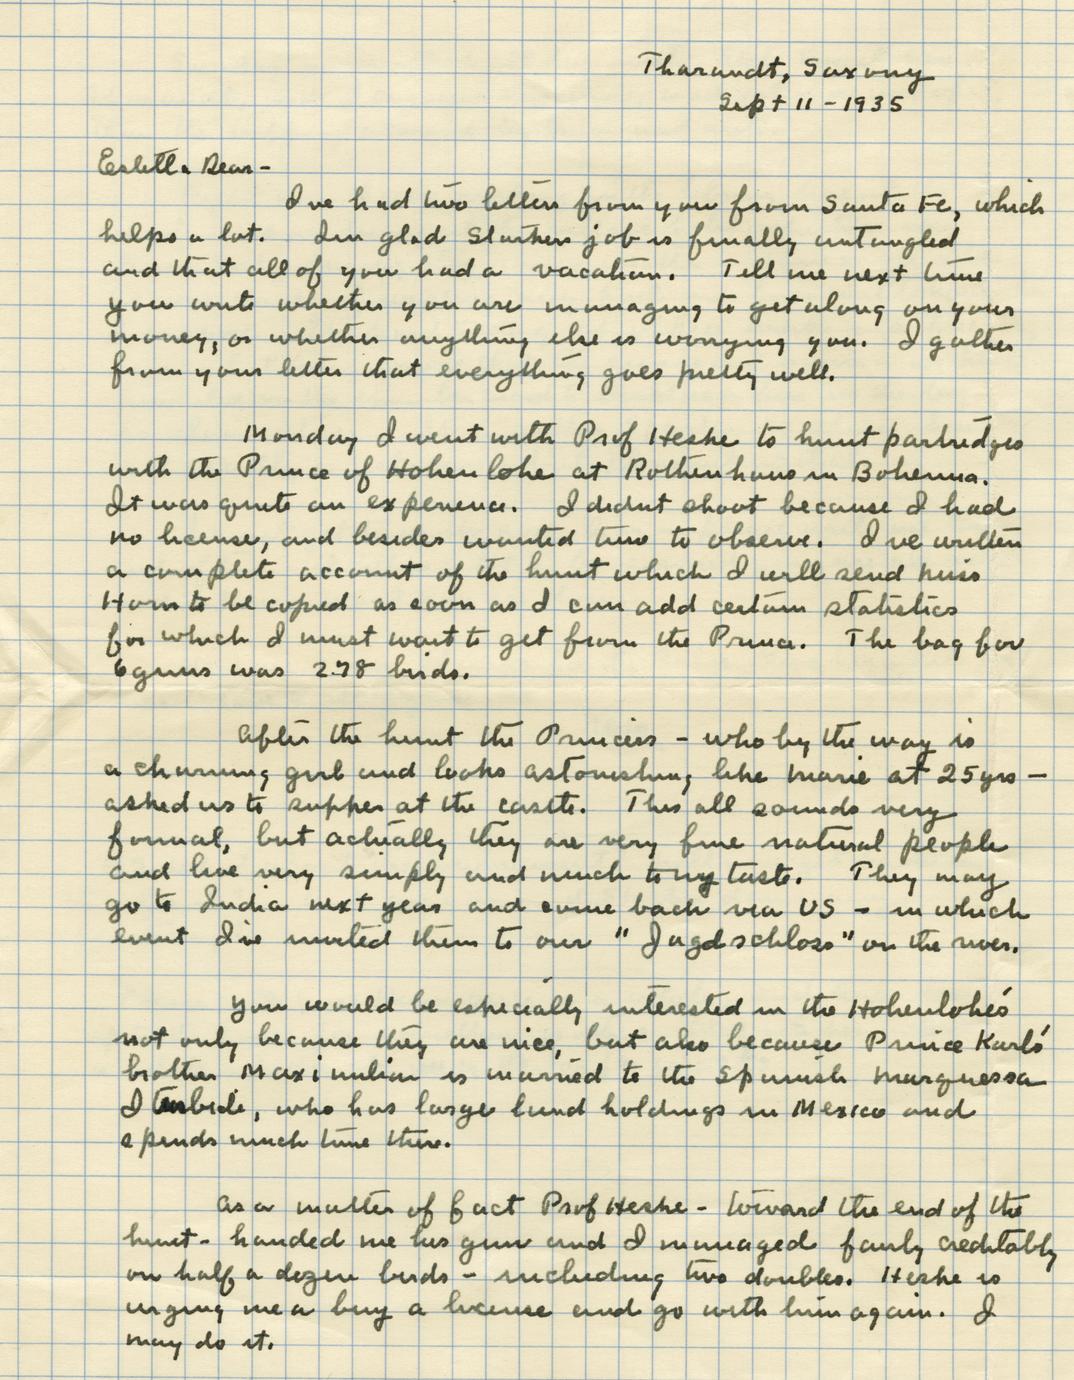 Tharandt, Saxony
Sept 11 - 1935
Estella Dear -
I've had two letters from you from Santa Fe, which
helps a lot. I'm glad Starkers job is finally untangled
and that all of you had a vacation. Tell me next time
you write whether you are managing to get along on your
money, or whether anything else is worrying you. I gather
from your letter that everything goes pretty well.
Monday I went with Prof Heske to hunt partridges
with the Prince of Hohenlohe at Rothenhaus in Bohemia.
It was quite an experience. I didnt shoot because I had
no license, and besides wanted time to observe. I've written
a complete account of the hunt which I will send Miss
Horn to be copied as soon as I can add certain statistics
for which I must wait to get from the Prince. The bag for
6 guns was 278 birds.
After the hunt the Princess - who by the way is
a charming girl and looks astonishing like Marie at 25 yrs -
asked us to supper at the castle. This all sounds very
formal, but actually they are very fine natural people
and live very simply and much to my taste. They may
go to India next year and come back via US - in which
event I've invited them to our "Jagdschloss" on the river.
You would be especially interested in the Hohenlohe's
not only because they are nice, but also because Prince Karl's
brother Maximilian is married to the Spanish Marquessa
Iturbide, who has large land holdings in Mexico and
spends much time there.
As a matter of fact Prof Heske - toward the end of the
hunt - handed me his gun and I managed fairly creditably
on half a dozen birds - including two doubles. Heske is
urging me a buy a license and go with him again. I
may do it.